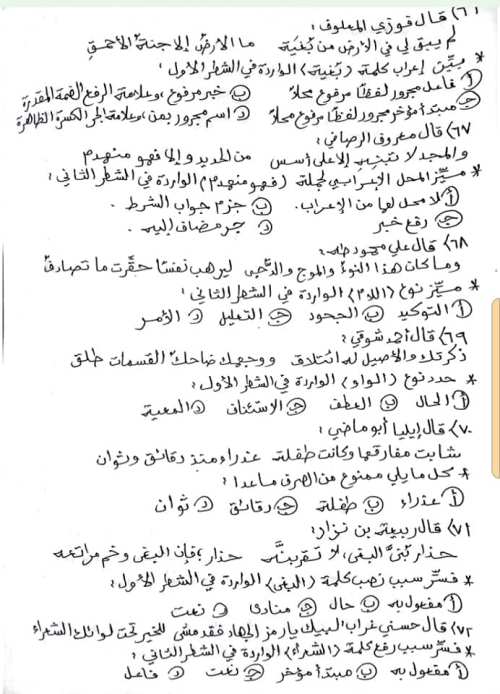 ٦٦) قال فوزي المعلوف:
لم يبق لي في الأرض من بُغْيَة    ما الأرضُ إلا جنةُ الأحمقِ
* بيّن إعراب كلمة (بُغْيَة) الواردة في الشطر الأول:
أ فاعل مجرور لفظاً مرفوع محلاً    ب خبر مرفوع، وعلامة الرفع الضمة المقدرة
ج مبتدأ مؤخر مجرور لفظاً مرفوع محلاً    د اسم مجرور بمن، وعلامة الجر الكسرة الظاهرة
٦٧) قال معروف الرصافي:
والمجد لا يبتني إلا على أسس    من الحديد وإلا فهو منهدم
* ميّز المحل الإعرابي لجملة (فهو منهدم) الواردة في الشطر الثاني:
أ لا محل لها من الإعراب.    ب جزم جواب الشرط.
ج رفع خبر    د جر مضاف إليه.
٦٨) قال علي محمود طه:
وما كان هذا النوءُ والموج والدّجى    ليرهب نفسًا حقّرت ما تصادفُ
* ميّز نوع (اللام) الواردة في الشطر الثاني:
أ التوكيد    ب الجحود    ج التعليل    د الأمر
٦٩) قال أحمد شوقي:
ذكرتك والأصيل له ائتلاق    ووجهك ضاحكُ القسمات طلق
* حدد نوع (الواو) الواردة في الشطر الأول:
أ الحال    ب العطف    ج الاستئناف    د المعية
٧٠) قال إيليا أبو ماضي:
شابت مفارقها وكانت طفلة    عذراء منذ دقائق وثوان
* كل ما يلي ممنوع من الصرف ما عدا:
أ عذراء    ب طفلة    ج دقائق    د ثوان
٧١) قال ربيعة بن نزار:
حذارِ بُنيَّ البغي، لا تقربنَّه    حذارِ؛ فإن البغي وخم مراتعه
* فسّر سبب نصب كلمة (البغي) الواردة في الشطر الأول:
أ مفعول به    ب حال    ج منادى    د نعت
٧٢) قال حسني غراب: لبيك يا رمز الجهاد فقد مشى للخير تحت لوائك الشعراء
* فسّر سبب رفع كلمة (الشعراء) الواردة في الشطر الثاني:
أ مفعول به    ب مبتدأ مؤخر    ج نعت    د فاعل